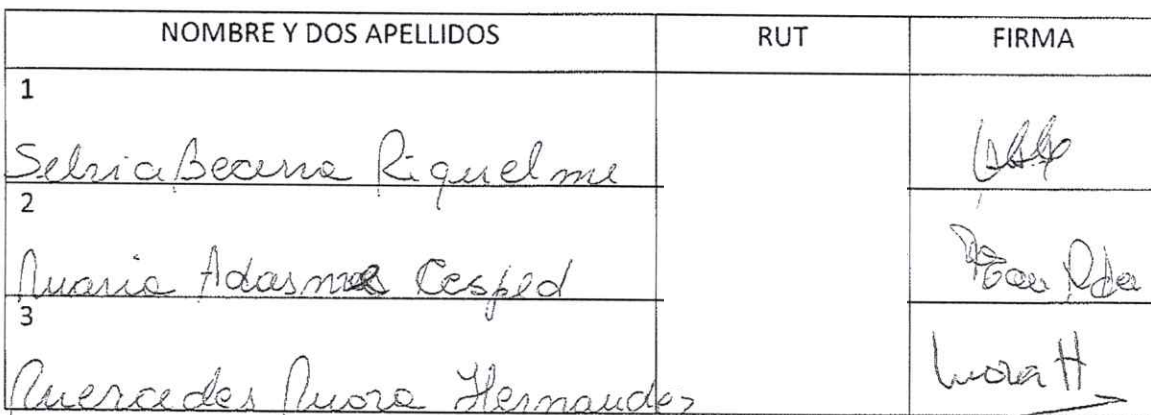 NOMBRE Y DOS APELLIDOS RUT FIRMA
1
Selvia Becerra Riquelme
2
Maria Adasmes Cesped
3
Mercedes Mora Hernandez Mora H